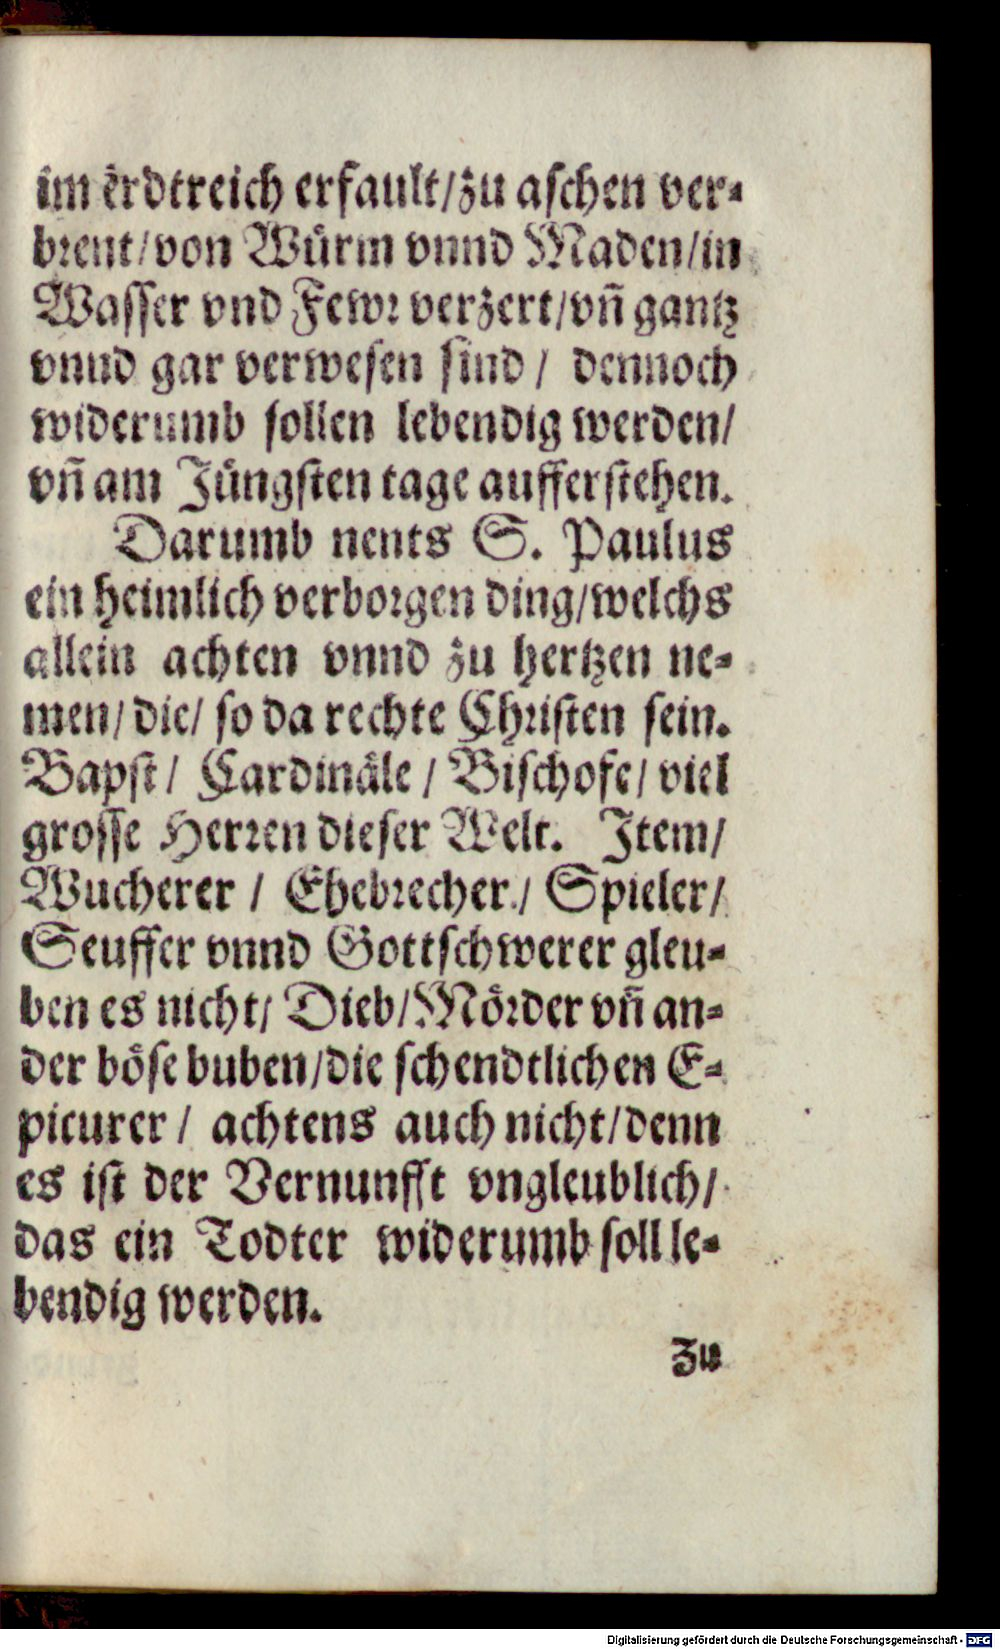 im erdtreich erfault/zu aschen ver-
brent/von Würm vnnd Maden/in
Wasser vnd Fewr verzert/vñ gantz
vnnd gar verwesen sind/ dennoch
widerumb sollen lebendig werden/
vñ am Jüngsten tage aufferstehen.
Darumb nents S. Paulus
ein heimlich verborgen ding/welchs
allein achten vnnd zu hertzen ne-
men/ die/ so da rechte Christen sein.
Bapst/ Cardinäle/ Bischofe/ viel
grosse Herren dieser Welt. Item/
Wucherer/ Ehebrecher/ Spieler/
Seuffer vnnd Gottschwerer gleu-
ben es nicht/ Dieb/Mörder vñ an-
der böse buben/die schendtlichen E-
picurer/ achtens auch nicht/denn
es ist der Vernunfft vngleublich/
das ein Todter widerumb soll le-
bendig werden.
Zu
Digitalisierung gefördert durch die Deutsche Forschungsgemeinschaft - DFG